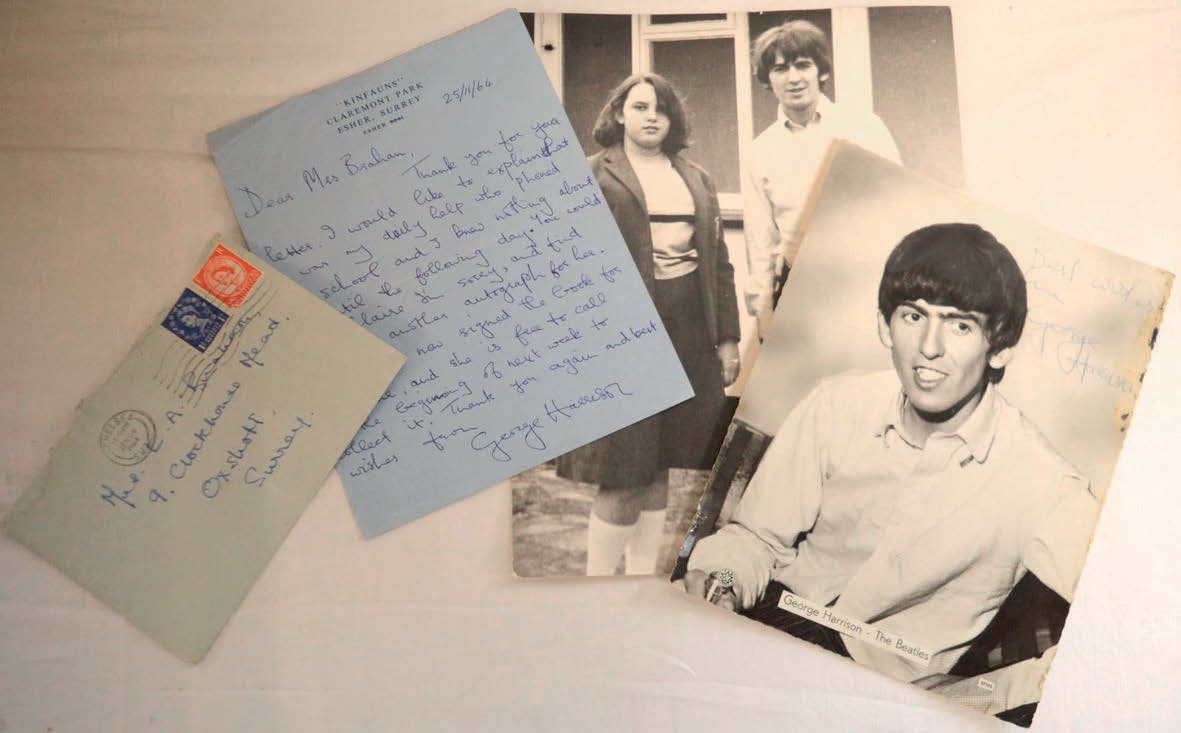 "KINFAUNS"
CLAREMONT PARK
ESHER, SURREY
ESHER
25/11/64
Dear Mrs Braham,
Thank you for your
letter. I would like to explain that
was my daily help who phoned
school and I knew nothing about
til the following day. You could
laire I'm sorry, and find
another autograph for her.
now signed the book for
e, and she is free to call
he beginning of next week to
ollect it. Thank you again and best
wishes from
George Harrison
Mrs. L. A. Braham,
9. Clockhouse Mead,
Oxshott,
Surrey.
Best wishes
George
Harrison
George Harrison - The Beatles